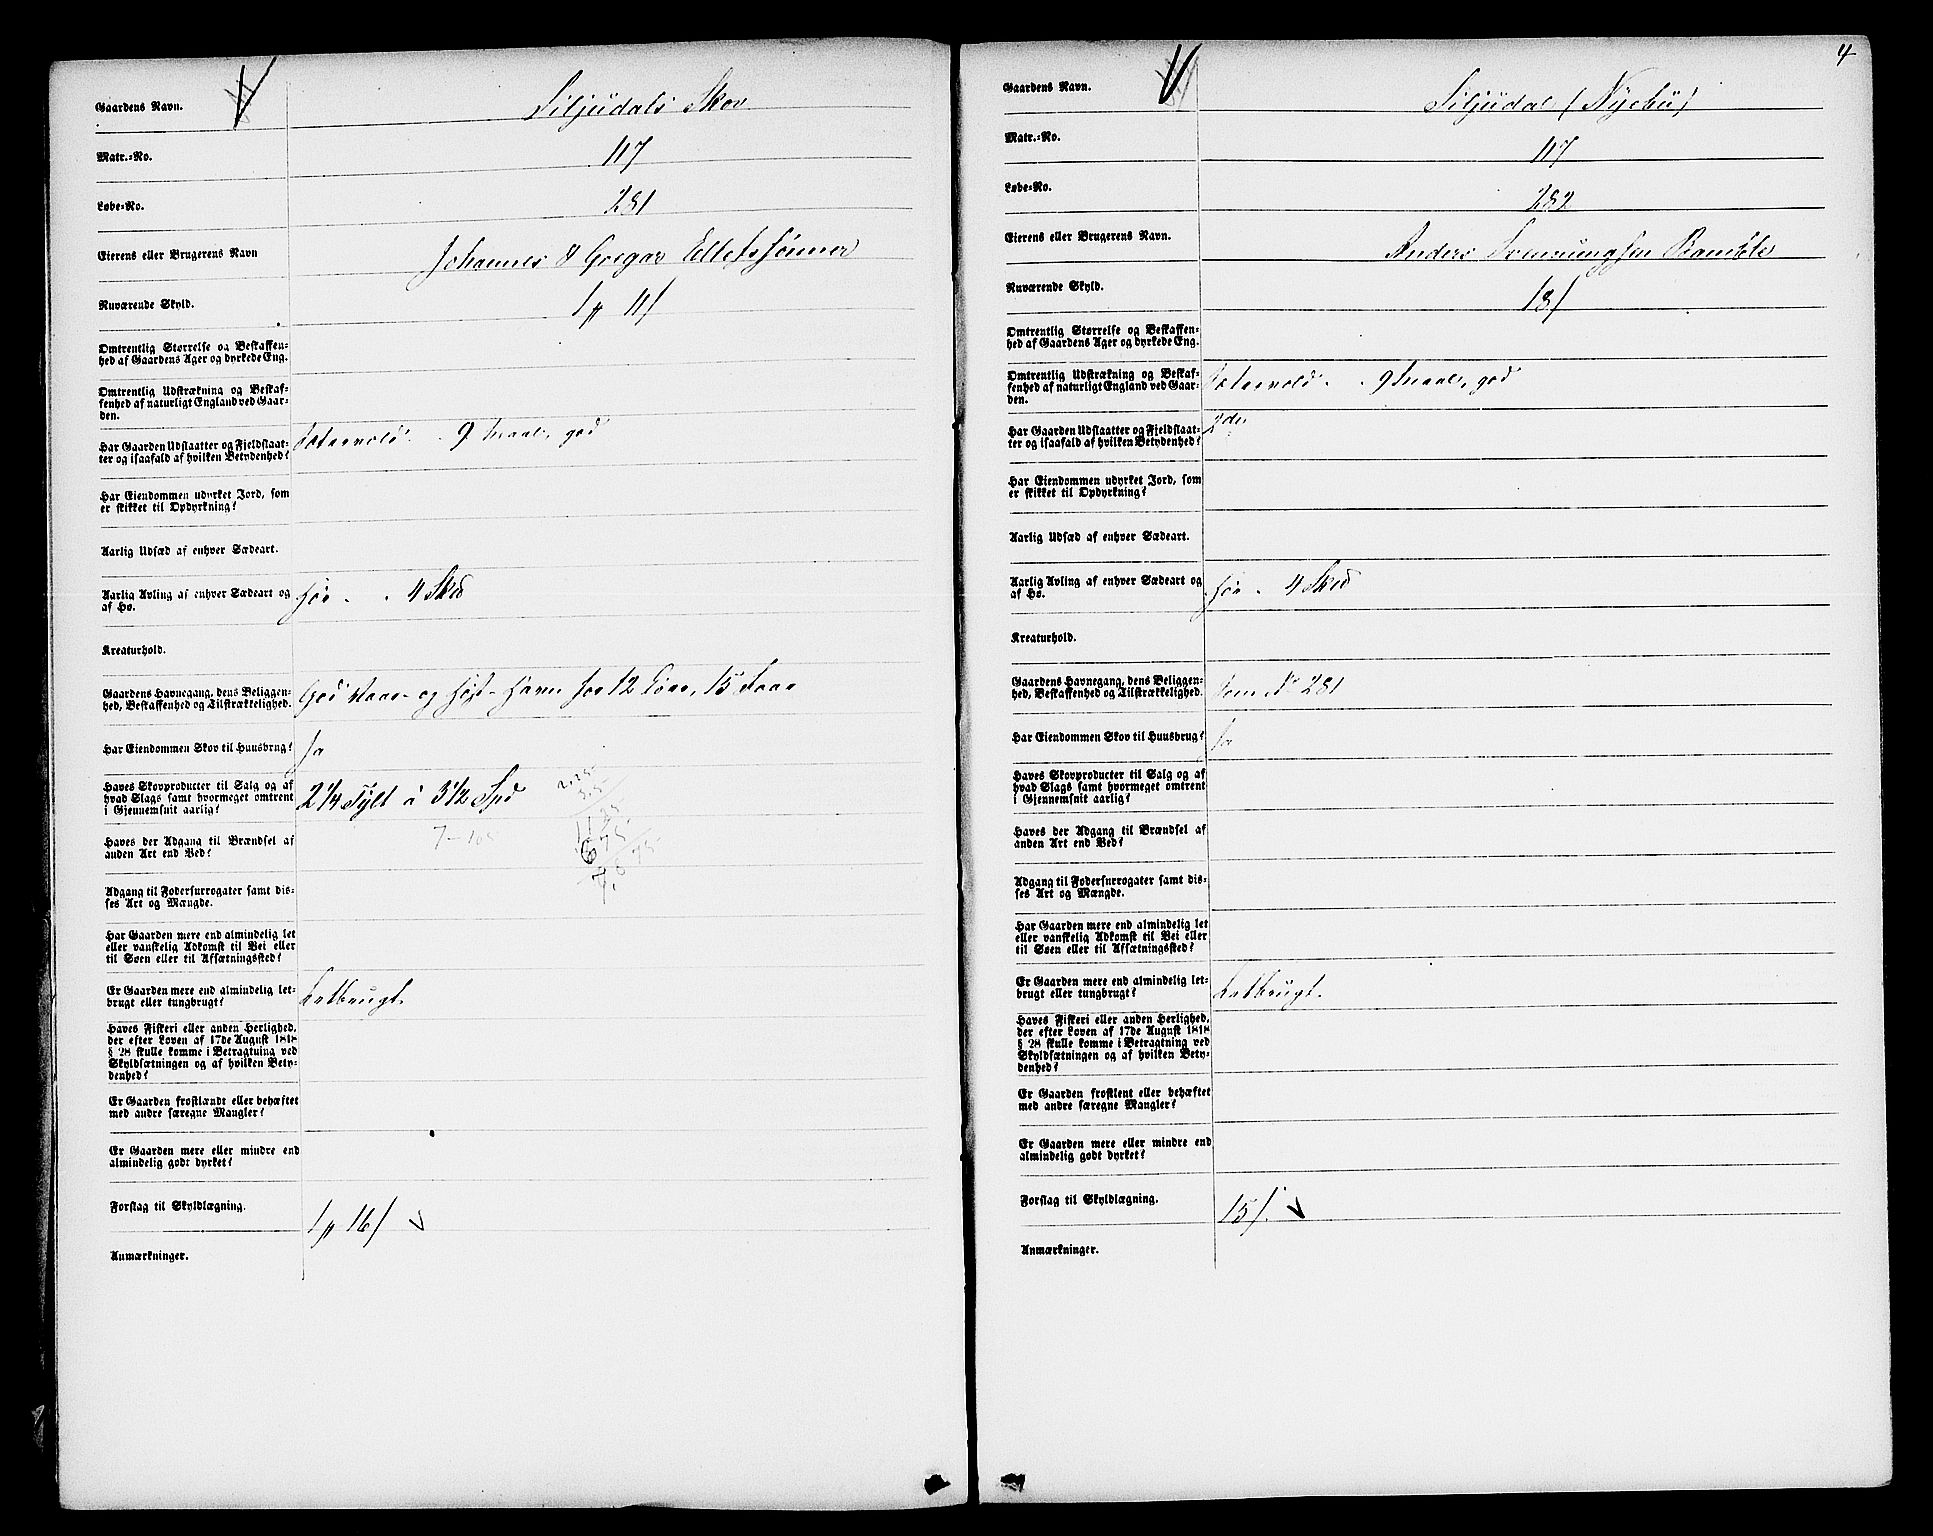 Gaardens Navn. Siljudals Skov
Matr.=No. 117
Løbe=No. 281
Eierens eller Brugerens Navn Johannes & Gregar Ellefssønner
Nuværende Skyld. 1 11
Omtrentlig Størrelse og Beskaffen=
hed af Gaardens Ager og dyrkede Eng.
Omtrentlig Udstrækning og Beskaf=
fenhed af naturligt England ved Gaar=
den.
Har Gaarden Udslaatter og Fjeldslaat= Sætervold. 9 Maal, god
ter og isaafald af hvilken Betydenhed?
Har Eiendommen udyrket Jord, som
er skikket til Opdyrkning?
Aarlig Udsæd af enhver Sædeart.
Aarlig Avling af enhver Sædeart og Hø. 4 Skd
af Hø.
Kreaturhold.
Gaardens Havnegang, dens Beliggen= God Vaar- og Høst-Havn for 12 Kør, 15 Faar
hed, Beskaffenhed og Tilstrækkelighed.
Har Eiendommen Skov til Huusbrug? Ja
Haves Skovproducter til Salg og af 2¼ Tylt à 3½ Spd 2,25
hvad Slags samt hvormeget omtrent 3.5
i Gjennemsnit aarlig? 1125
Haves der Adgang til Brændsel af 7-105 675
anden Art end Ved?
Adgang til Fodersurrogater samt dis=
ses Art og Mængde.
Har Gaarden mere end almindelig let
eller vanskelig Adkomst til Vei eller
til Søen eller til Afsætningssted?
Er Gaarden mere end almindelig let= Letbrugt.
brugt eller tungbrugt?
Haves Fiskeri eller anden Herlighed,
der efter Loven af 17de August 1818
§ 28 skulle komme i Betragtning ved
Skyldsætningen og af hvilken Bety=
denhed?
Er Gaarden frostlændt eller behæftet
med andre særegne Mangler?
Er Gaarden mere eller mindre end
almindelig godt dyrket?
Forslag til Skyldlægning. 1 16
Anmærkninger.
4
Gaardens Navn. Siljudal (Nyebø)
Matr.=No. 117
Løbe=No. 282
Eierens eller Brugerens Navn. Anders Svenungsen Bamble
Nuværende Skyld. 18
Omtrentlig Størrelse og Beskaffen=
hed af Gaardens Ager og dyrkede Eng.
Omtrentlig Udstrækning og Beskaf= Sætervold. 9 Maal, god
fenhed af naturligt England ved Gaar=
den.
Har Gaarden Udslaatter og Fjeldslaat=
ter og isaafald af hvilken Betydenhed?
Har Eiendommen udyrket Jord, som
er skikket til Opdyrkning?
Aarlig Udsæd af enhver Sædeart.
Aarlig Avling af enhver Sædeart og Hø. 4 Skd
af Hø.
Kreaturhold.
Gaardens Havnegang, dens Beliggen= Som No 281
hed, Beskaffenhed og Tilstrækkelighed.
Har Eiendommen Skov til Huusbrug? Ja
Haves Skovproducter til Salg og af
hvad Slags samt hvormeget omtrent
i Gjennemsnit aarlig?
Haves der Adgang til Brændsel af
anden Art end Ved?
Adgang til Fodersurrogater samt dis=
ses Art og Mængde.
Har Gaarden mere end almindelig let
eller vanskelig Adkomst til Vei eller
til Søen eller til Afsætningssted?
Er Gaarden mere end almindelig let= Letbrugt.
brugt eller tungbrugt?
Haves Fiskeri eller anden Herlighed,
der efter Loven af 17de August 1818
§ 28 skulle komme i Betragtning ved
Skyldsætningen og af hvilken Bety=
denhed?
Er Gaarden frostlent eller behæftet
med andre særegne Mangler?
Er Gaarden mere eller mindre end
almindelig godt dyrket?
Forslag til Skyldlægning. 15
Anmærkninger.